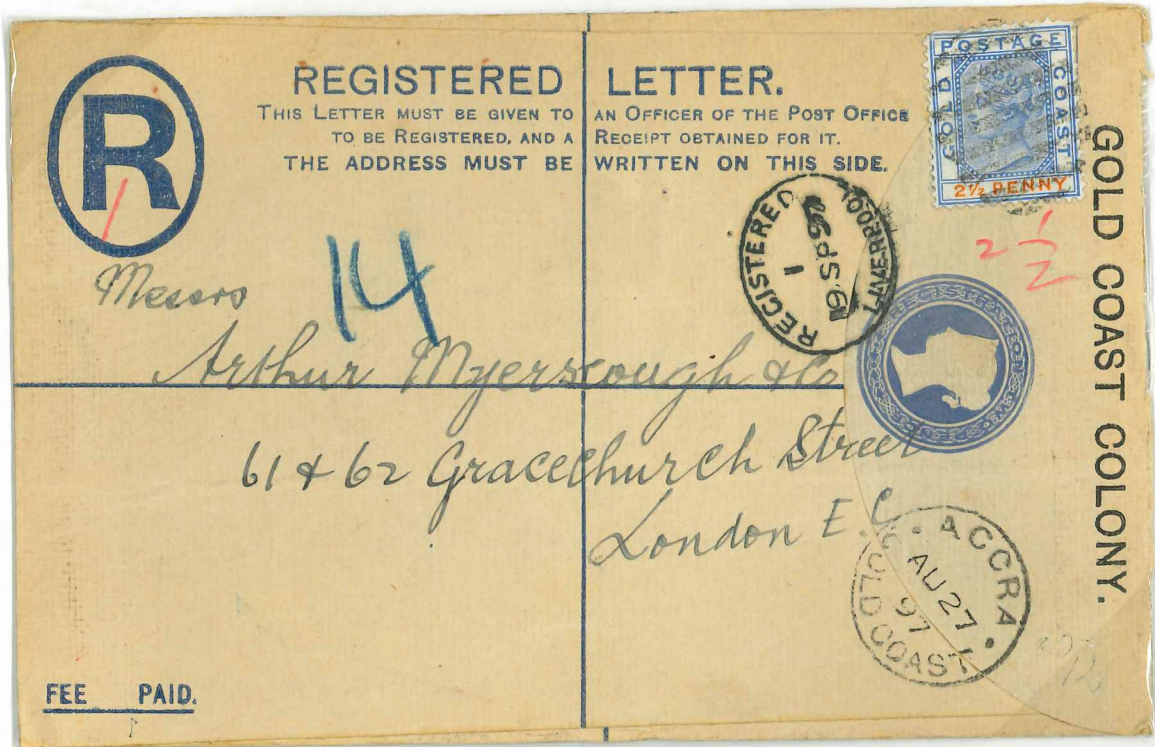 REGISTERED LETTER.
THIS LETTER MUST BE GIVEN TO AN OFFICER OF THE POST OFFICE
TO BE REGISTERED, AND A RECEIPT OBTAINED FOR IT.
THE ADDRESS MUST BE WRITTEN ON THIS SIDE.
R
POSTAGE
GOLD
COAST
2½ PENNY
GOLD COAST COLONY.
2 1/2
14
REGISTERED
LIVERPOOL
1
19 SP 97
Messrs
Arthur Myerscough & Co
61 & 62 Gracechurch Street
London E.C.
ACCRA
AU 27
97
GOLD COAST
FEE PAID.